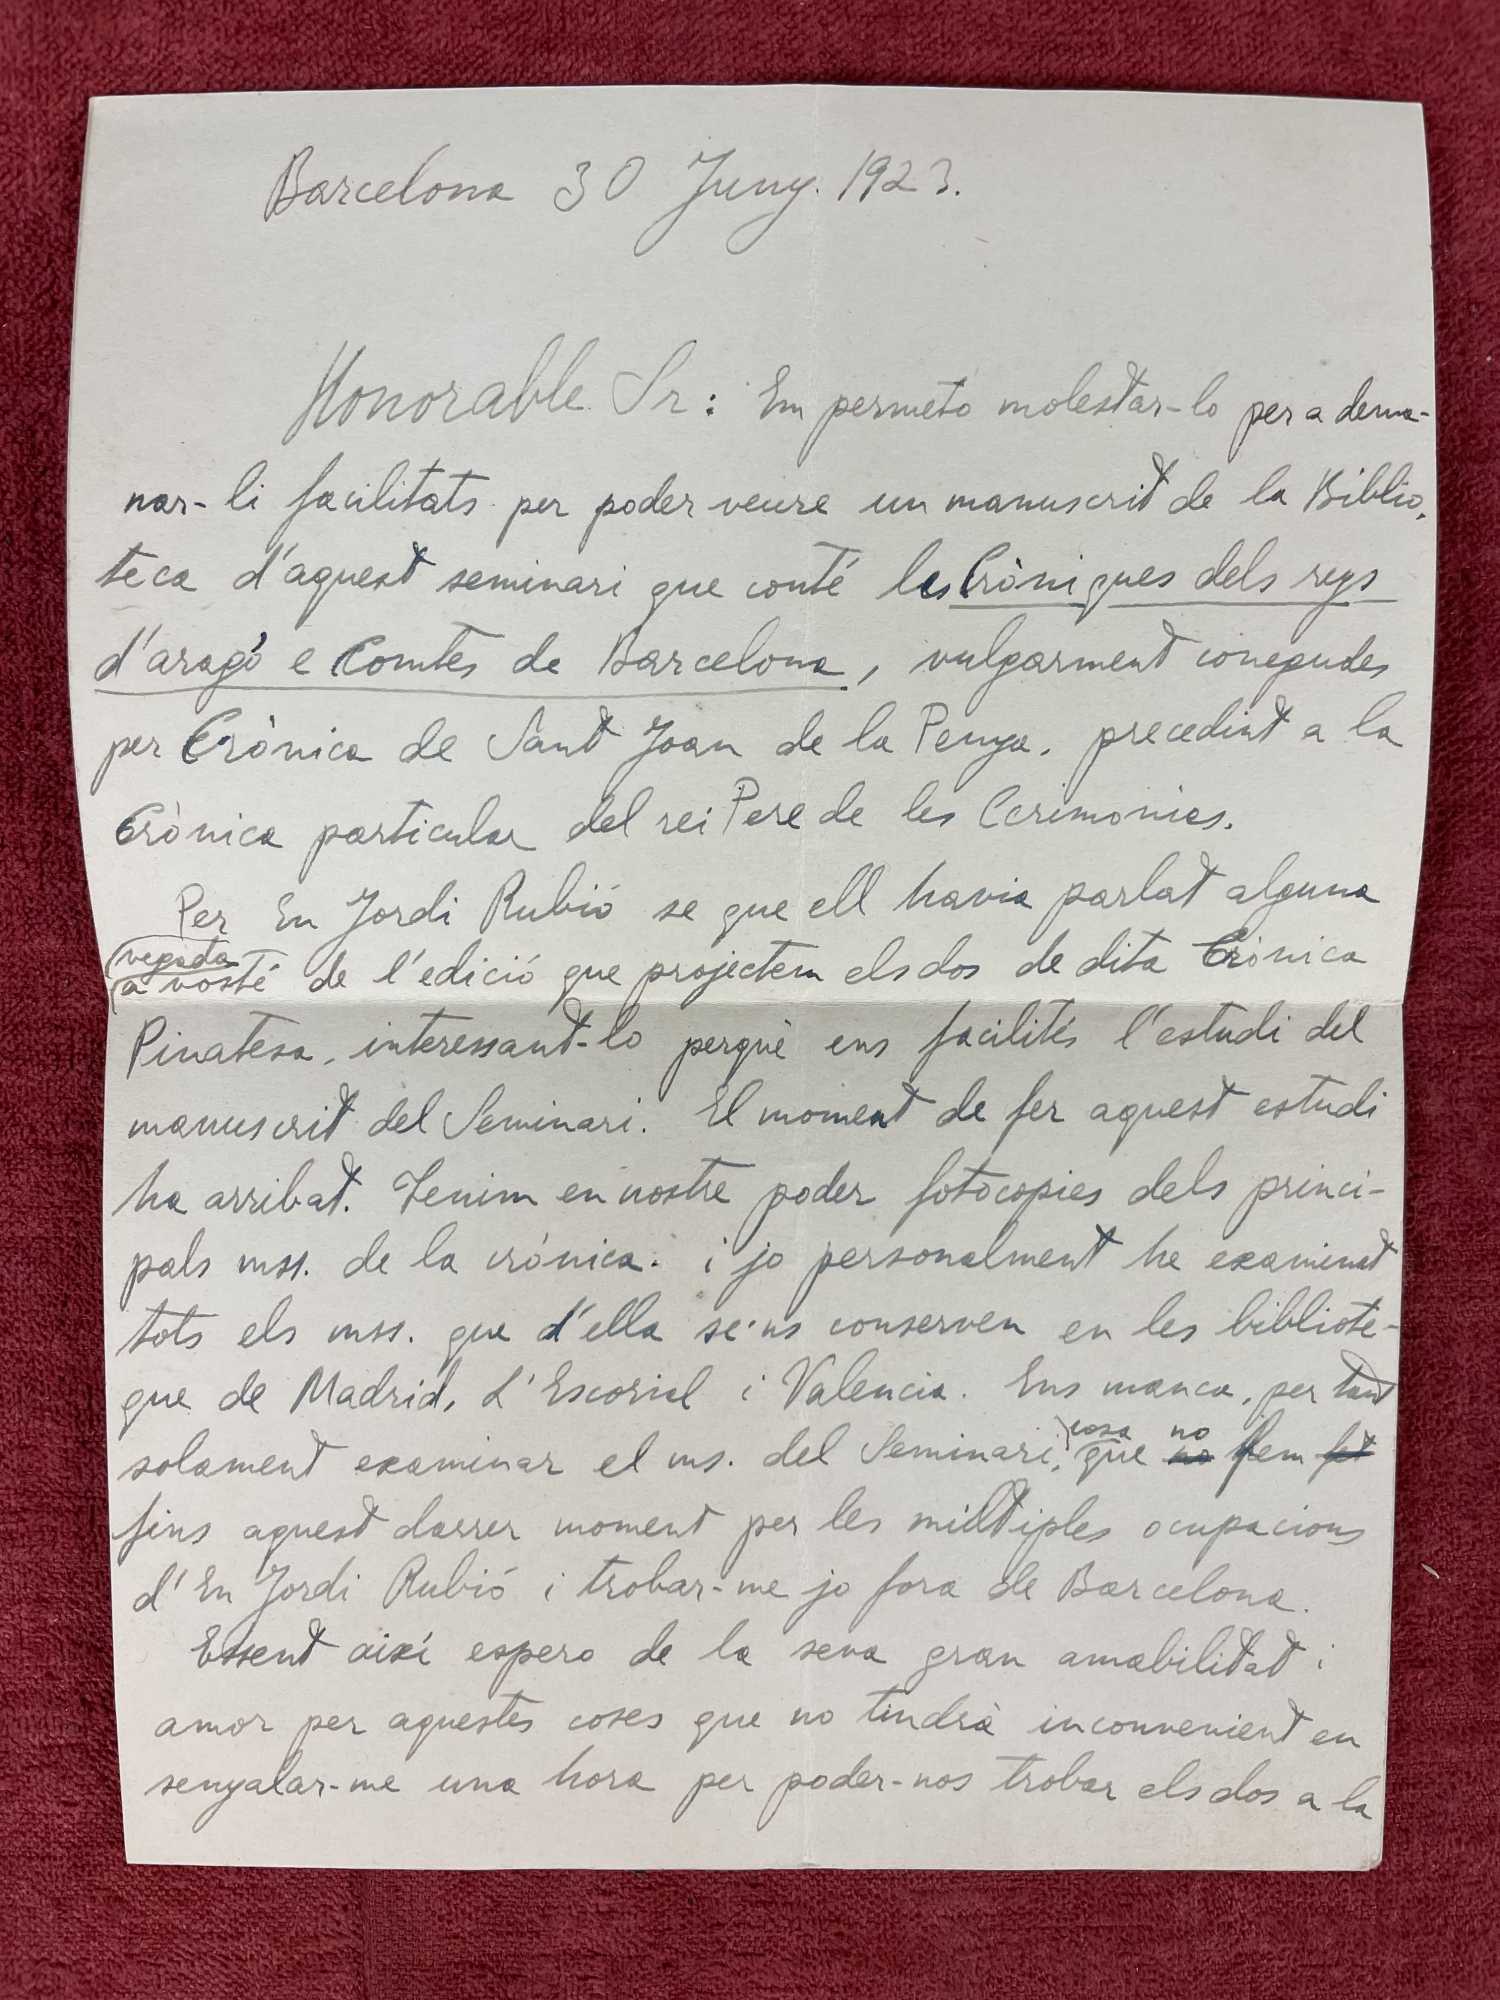 Barcelona 30 Juny. 1923.
Honorable Sr: Em permeto molestar-lo per a dema-
nar-li facilitats per poder veure un manuscrit de la Biblio-
teca d'aquest seminari que conté les Cròniques dels reys
d'aragó e Comtes de Barcelona, vulgarment conegudes
per Crònica de Sant Joan de la Penya, precedint a la
Crònica particular del rei Pere de les Cerimonies.
Per En Jordi Rubió se que ell havia parlat alguna
vegada
a vosté de l'edició que projectem els dos de dita Crònica
Pinatesa, interessant-lo perquè ens facilités l'estudi del
manuscrit del Seminari. El moment de fer aquest estudi
ha arribat. Tenim en nostre poder fotocopies dels princi-
pals mss. de la crònica. i jo personalment he examinat
tots els mss. que d'ella se'ns conserven en les bibliote-
que de Madrid, L'Escorial i Valencia. Ens manca, per tant
cosa no
solament examinar el ms. del Seminari, que no fem fet
fins aquest darrer moment per les múltiples ocupacions
d'En Jordi Rubió i trobar-me jo fora de Barcelona.
Essent aixi espero de la seva gran amabilitat i
amor per aquestes coses que no tindrà inconvenient en
senyalar-me una hora per poder-nos trobar els dos a la